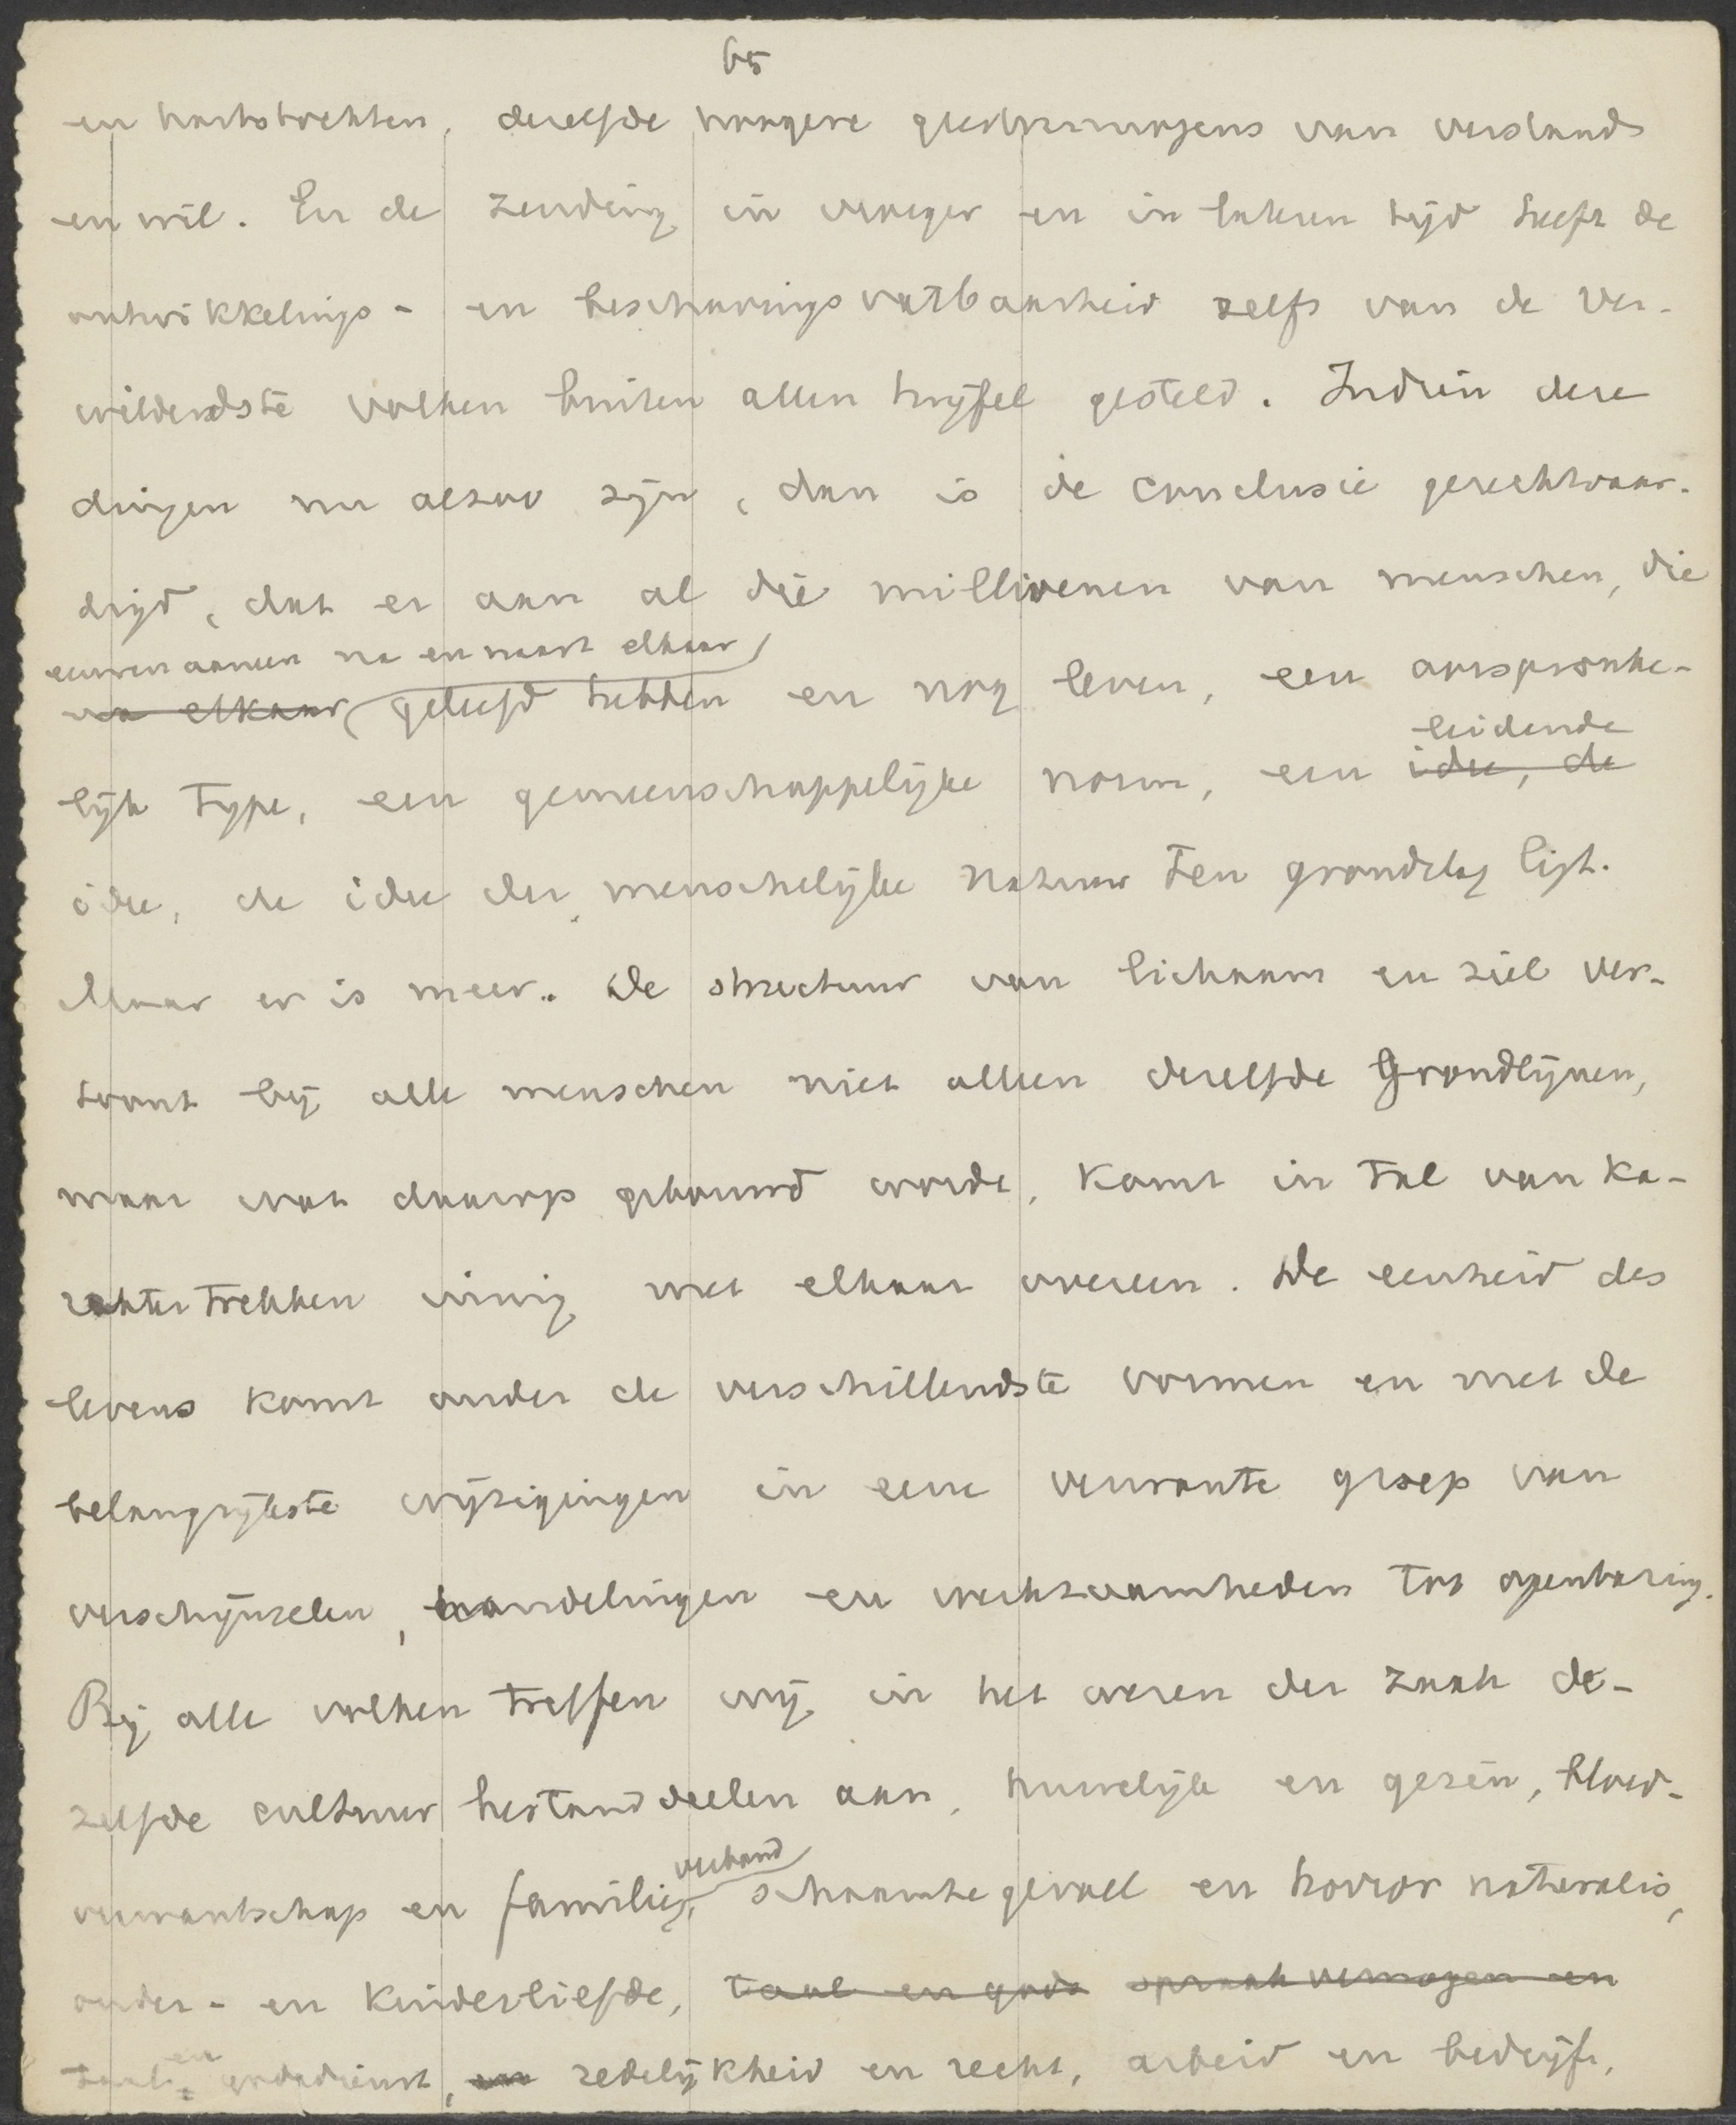 65
en hartstochten, dezelfde hoogere grondvermogens van verstand
en wil. En de zending in vroeger en in lateren tijd heeft de
ontwikkelings- en beschavingsvatbaarheid zelfs van de ver-
wilderdste volken buiten allen twijfel gesteld. Indien deze
dingen nu alzoo zijn, dan is de conclusie gerechtvaar-
digd, dat er aan al die millioenen van menschen, die
eeuwen aaneen na en naast elkaar
na elkaar geleefd hebben en nog leven, een oorspronke-
leidende
lijk type, een gemeenschappelijke norm, een idee, de
idee, de idee der menschelijke natuur ten grondslag ligt.
Maar er is meer. De structuur van lichaam en ziel ver-
toont bij alle menschen niet alleen dezelfde grondlijnen,
maar wat daarop gebouwd wordt, komt in tal van ka-
raktertrekken innig met elkaar overeen. De eenheid des
levens komt onder de verschillendste vormen en met de
belangrijkste wijzigingen in eene verwante groep van
verschijnselen, handelingen en werkzaamheden tot openbaring.
Bij alle volken treffen wij in het wezen der zaak de-
zelfde cultuur bestanddeelen aan, huwelijk en gezin, bloed-
verband
verwantschap en familie, schaamtegevoel en horror naturalis,
ouder- en kinderliefde, taal en gods spraakvermogen en
en
taal godsdienst, en zedelijkheid en recht, arbeid en bedrijf,